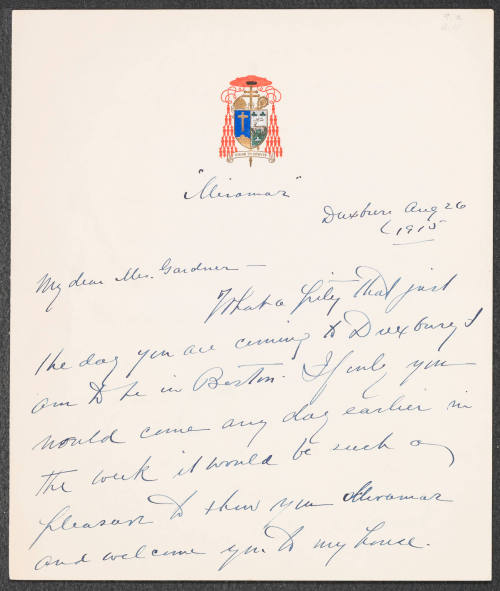 "Miramar"
Duxbury Aug 26
1915
My dear Mrs. Gardner —
What a pity that just
the day you are coming to Duxbury I
am to be in Boston. If only you
would come any day earlier in
the week it would be such a
pleasure to show you Miramar
and welcome you to my house.